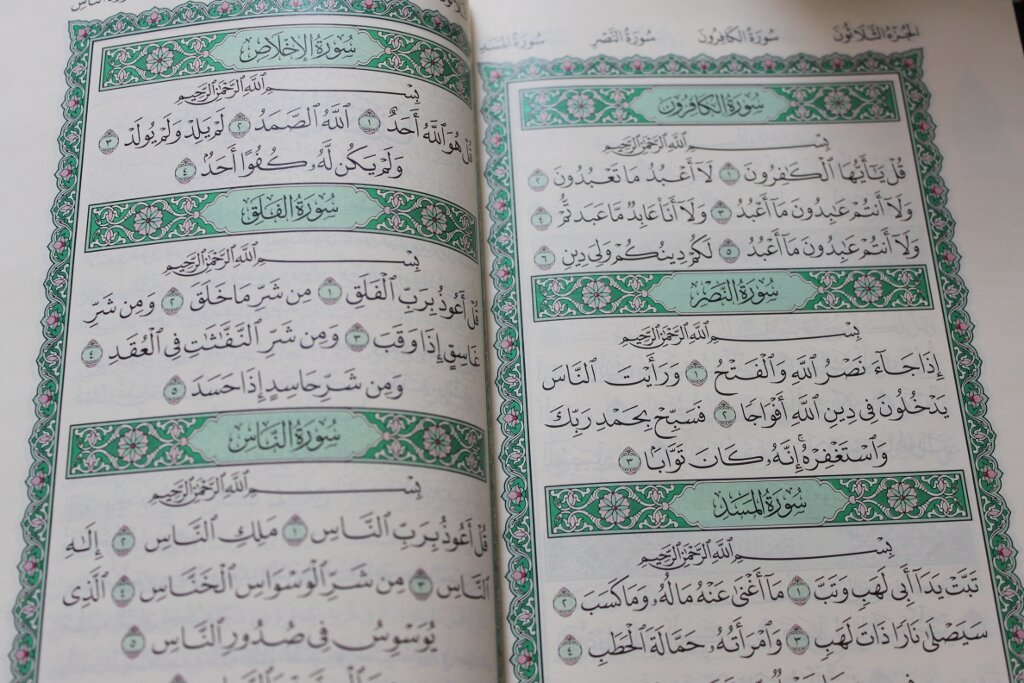 الجزء الثلاثون سورة الكافرون سورة النصر سورة المسد
سُورَةُ الكَافِرُونَ
بِسْمِ ٱللَّهِ ٱلرَّحْمَٰنِ ٱلرَّحِيمِ
قُلْ يَٰٓأَيُّهَا ٱلْكَٰفِرُونَ ١ لَآ أَعْبُدُ مَا تَعْبُدُونَ ٢
وَلَآ أَنتُمْ عَٰبِدُونَ مَآ أَعْبُدُ ٣ وَلَآ أَنَا۠ عَابِدٌ مَّا عَبَدتُّمْ ٤
وَلَآ أَنتُمْ عَٰبِدُونَ مَآ أَعْبُدُ ٥ لَكُمْ دِينُكُمْ وَلِىَ دِينِ ٦
سُورَةُ النَّصْرِ
بِسْمِ ٱللَّهِ ٱلرَّحْمَٰنِ ٱلرَّحِيمِ
إِذَا جَآءَ نَصْرُ ٱللَّهِ وَٱلْفَتْحُ ١ وَرَأَيْتَ ٱلنَّاسَ
يَدْخُلُونَ فِى دِينِ ٱللَّهِ أَفْوَاجًا ٢ فَسَبِّحْ بِحَمْدِ رَبِّكَ
وَٱسْتَغْفِرْهُ إِنَّهُۥ كَانَ تَوَّابًۢا ٣
سُورَةُ المَسَدِ
بِسْمِ ٱللَّهِ ٱلرَّحْمَٰنِ ٱلرَّحِيمِ
تَبَّتْ يَدَآ أَبِى لَهَبٍ وَتَبَّ ١ مَآ أَغْنَىٰ عَنْهُ مَالُهُۥ وَمَا كَسَبَ ٢
سَيَصْلَىٰ نَارًا ذَاتَ لَهَبٍ ٣ وَٱمْرَأَتُهُۥ حَمَّالَةَ ٱلْحَطَبِ ٤
سُورَةُ الإِخْلَاصِ
بِسْمِ ٱللَّهِ ٱلرَّحْمَٰنِ ٱلرَّحِيمِ
قُلْ هُوَ ٱللَّهُ أَحَدٌ ١ ٱللَّهُ ٱلصَّمَدُ ٢ لَمْ يَلِدْ وَلَمْ يُولَدْ ٣
وَلَمْ يَكُن لَّهُۥ كُفُوًا أَحَدٌۢ ٤
سُورَةُ الفَلَقِ
بِسْمِ ٱللَّهِ ٱلرَّحْمَٰنِ ٱلرَّحِيمِ
قُلْ أَعُوذُ بِرَبِّ ٱلْفَلَقِ ١ مِن شَرِّ مَا خَلَقَ ٢ وَمِن شَرِّ
غَاسِقٍ إِذَا وَقَبَ ٣ وَمِن شَرِّ ٱلنَّفَّٰثَٰتِ فِى ٱلْعُقَدِ ٤
وَمِن شَرِّ حَاسِدٍ إِذَا حَسَدَ ٥
سُورَةُ النَّاسِ
بِسْمِ ٱللَّهِ ٱلرَّحْمَٰنِ ٱلرَّحِيمِ
قُلْ أَعُوذُ بِرَبِّ ٱلنَّاسِ ١ مَلِكِ ٱلنَّاسِ ٢ إِلَٰهِ
ٱلنَّاسِ ٣ مِن شَرِّ ٱلْوَسْوَاسِ ٱلْخَنَّاسِ ٤ ٱلَّذِى
يُوَسْوِسُ فِى صُدُورِ ٱلنَّاسِ ٥